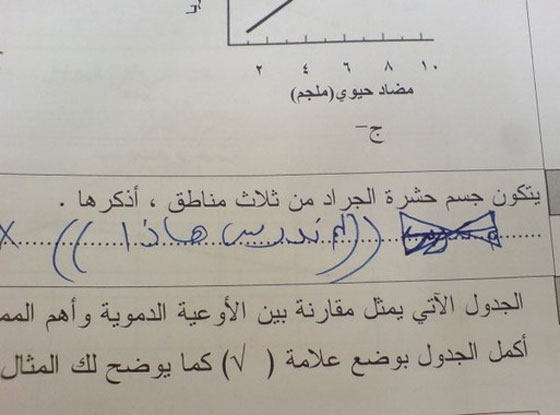 ٢ ٤ ٦ ٨ ١٠
مضاد حيوي(ملجم)
ج-
يتكون جسم حشرة الجراد من ثلاث مناطق ، أذكرها .
((لم ندرس هاذا))
الجدول الآتي يمثل مقارنة بين الأوعية الدموية وأهم المم
أكمل الجدول بوضع علامة ( √ ) كما يوضح لك المثال